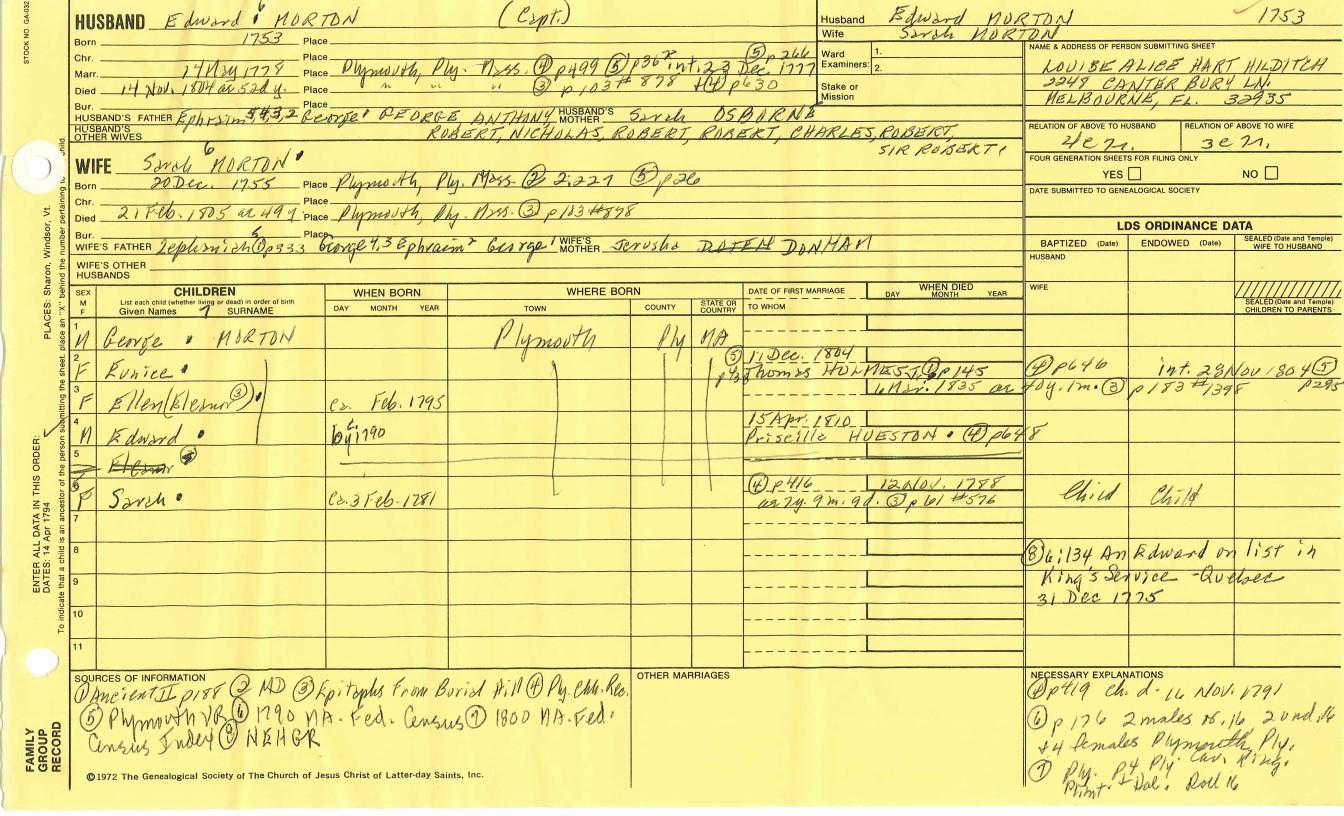 STOCK NO. GA-032
HUSBAND Edward 6 MORTON (Capt.)
Husband Edward MORTON 1753
Wife Sarah MORTON
Born 1753 Place
Chr. Place ⑤ p266
Marr. 14 May 1778 Place Plymouth, Ply. Mass. ④ p499 ⑤ p362 int. 23 Dec. 1777
Died 14 Nov. 1804 ae 52d y. Place " " " ③ p103 # 878 ④ p630
Bur. Place
Ward Examiners: 1.
2.
Stake or Mission
NAME & ADDRESS OF PERSON SUBMITTING SHEET
LOUISE ALICE HART HILDITCH
2248 CANTERBURY LN.
MELBOURNE, FL. 32935
HUSBAND'S FATHER Ephraim 5,4,3,2 George' GEORGE ANTHONY, HUSBAND'S MOTHER Sarah OSBORNE
HUSBAND'S OTHER WIVES ROBERT, NICHOLAS, ROBERT, ROBERT, CHARLES, ROBERT,
SIR ROBERT
RELATION OF ABOVE TO HUSBAND 4c
RELATION OF ABOVE TO WIFE 3c
WIFE Sarah 6 MORTON
Born 20 Dec. 1755 Place Plymouth, Ply. Mass. ② 2:227 ⑤ p26
Chr. Place
Died 21 Feb. 1805 ae 49y Place Plymouth, Ply. Mass. ③ p103 #878
Bur. Place
WIFE'S FATHER Zephaniah 5 ① p333 George 4,3 Ephraim 2 George' WIFE'S MOTHER Jerusha DONHAM
WIFE'S OTHER HUSBANDS
FOUR GENERATION SHEETS FOR FILING ONLY
YES NO
DATE SUBMITTED TO GENEALOGICAL SOCIETY
LDS ORDINANCE DATA
BAPTIZED (Date) ENDOWED (Date) SEALED (Date and Temple) WIFE TO HUSBAND
HUSBAND
WIFE
SEALED (Date and Temple) CHILDREN TO PARENTS
SEX M F
CHILDREN
List each child (whether living or dead) in order of birth
Given Names 7 SURNAME
WHEN BORN
DAY MONTH YEAR
WHERE BORN
TOWN COUNTY STATE OR COUNTRY
DATE OF FIRST MARRIAGE
TO WHOM
WHEN DIED
DAY MONTH YEAR
1 M George MORTON Plymouth Ply MA
2 F Eunice ⑤ 11 Dec. 1804
Thomas HOLMES ① p145 ④ p646 int. 28 Nov 1804 ⑤ p295
3 F Ellen (Eleanor ③) ca. Feb. 1795 6 Mar. 1835 ae 40y. 1m. ③ p183 #1398
4 M Edward by 1790 15 Apr. 1810
Priscilla HUESTON ④ p648
5 Eleanor
6 F Sarah ca. 3 Feb. 1781 ④ p416 12 Nov. 1788
ae 7y. 9m. 9d. ③ p61 #576 Child Child
7
8
9
10
11
⑧ 6:134 An Edward on list in
King's Service - Quebec
31 Dec 1775
SOURCES OF INFORMATION
① Ancient II p188 ② MD ③ Epitaphs From Burial Hill ④ Ply. Chh. Rec.
⑤ Plymouth VR ⑥ 1790 MA. Fed. Census ⑦ 1800 MA. Fed.
Census Index ⑧ NEHGR
©1972 The Genealogical Society of The Church of Jesus Christ of Latter-day Saints, Inc.
OTHER MARRIAGES
NECESSARY EXPLANATIONS
④ p419 ch. d. 16 Nov. 1791
⑥ p176 2 males ov. 16, 2 und. 16
+4 females Plymouth, Ply.
⑦ Ply. p4 Ply. Cav. Ring.
Print. + Dal. Roll 16
FAMILY GROUP RECORD
ENTER ALL DATA IN THIS ORDER:
DATES: 14 Apr 1794
PLACES: Sharon, Windsor, Vt.
To indicate that a child is an ancestor of the person submitting the sheet, place an "X" behind the number pertaining to child